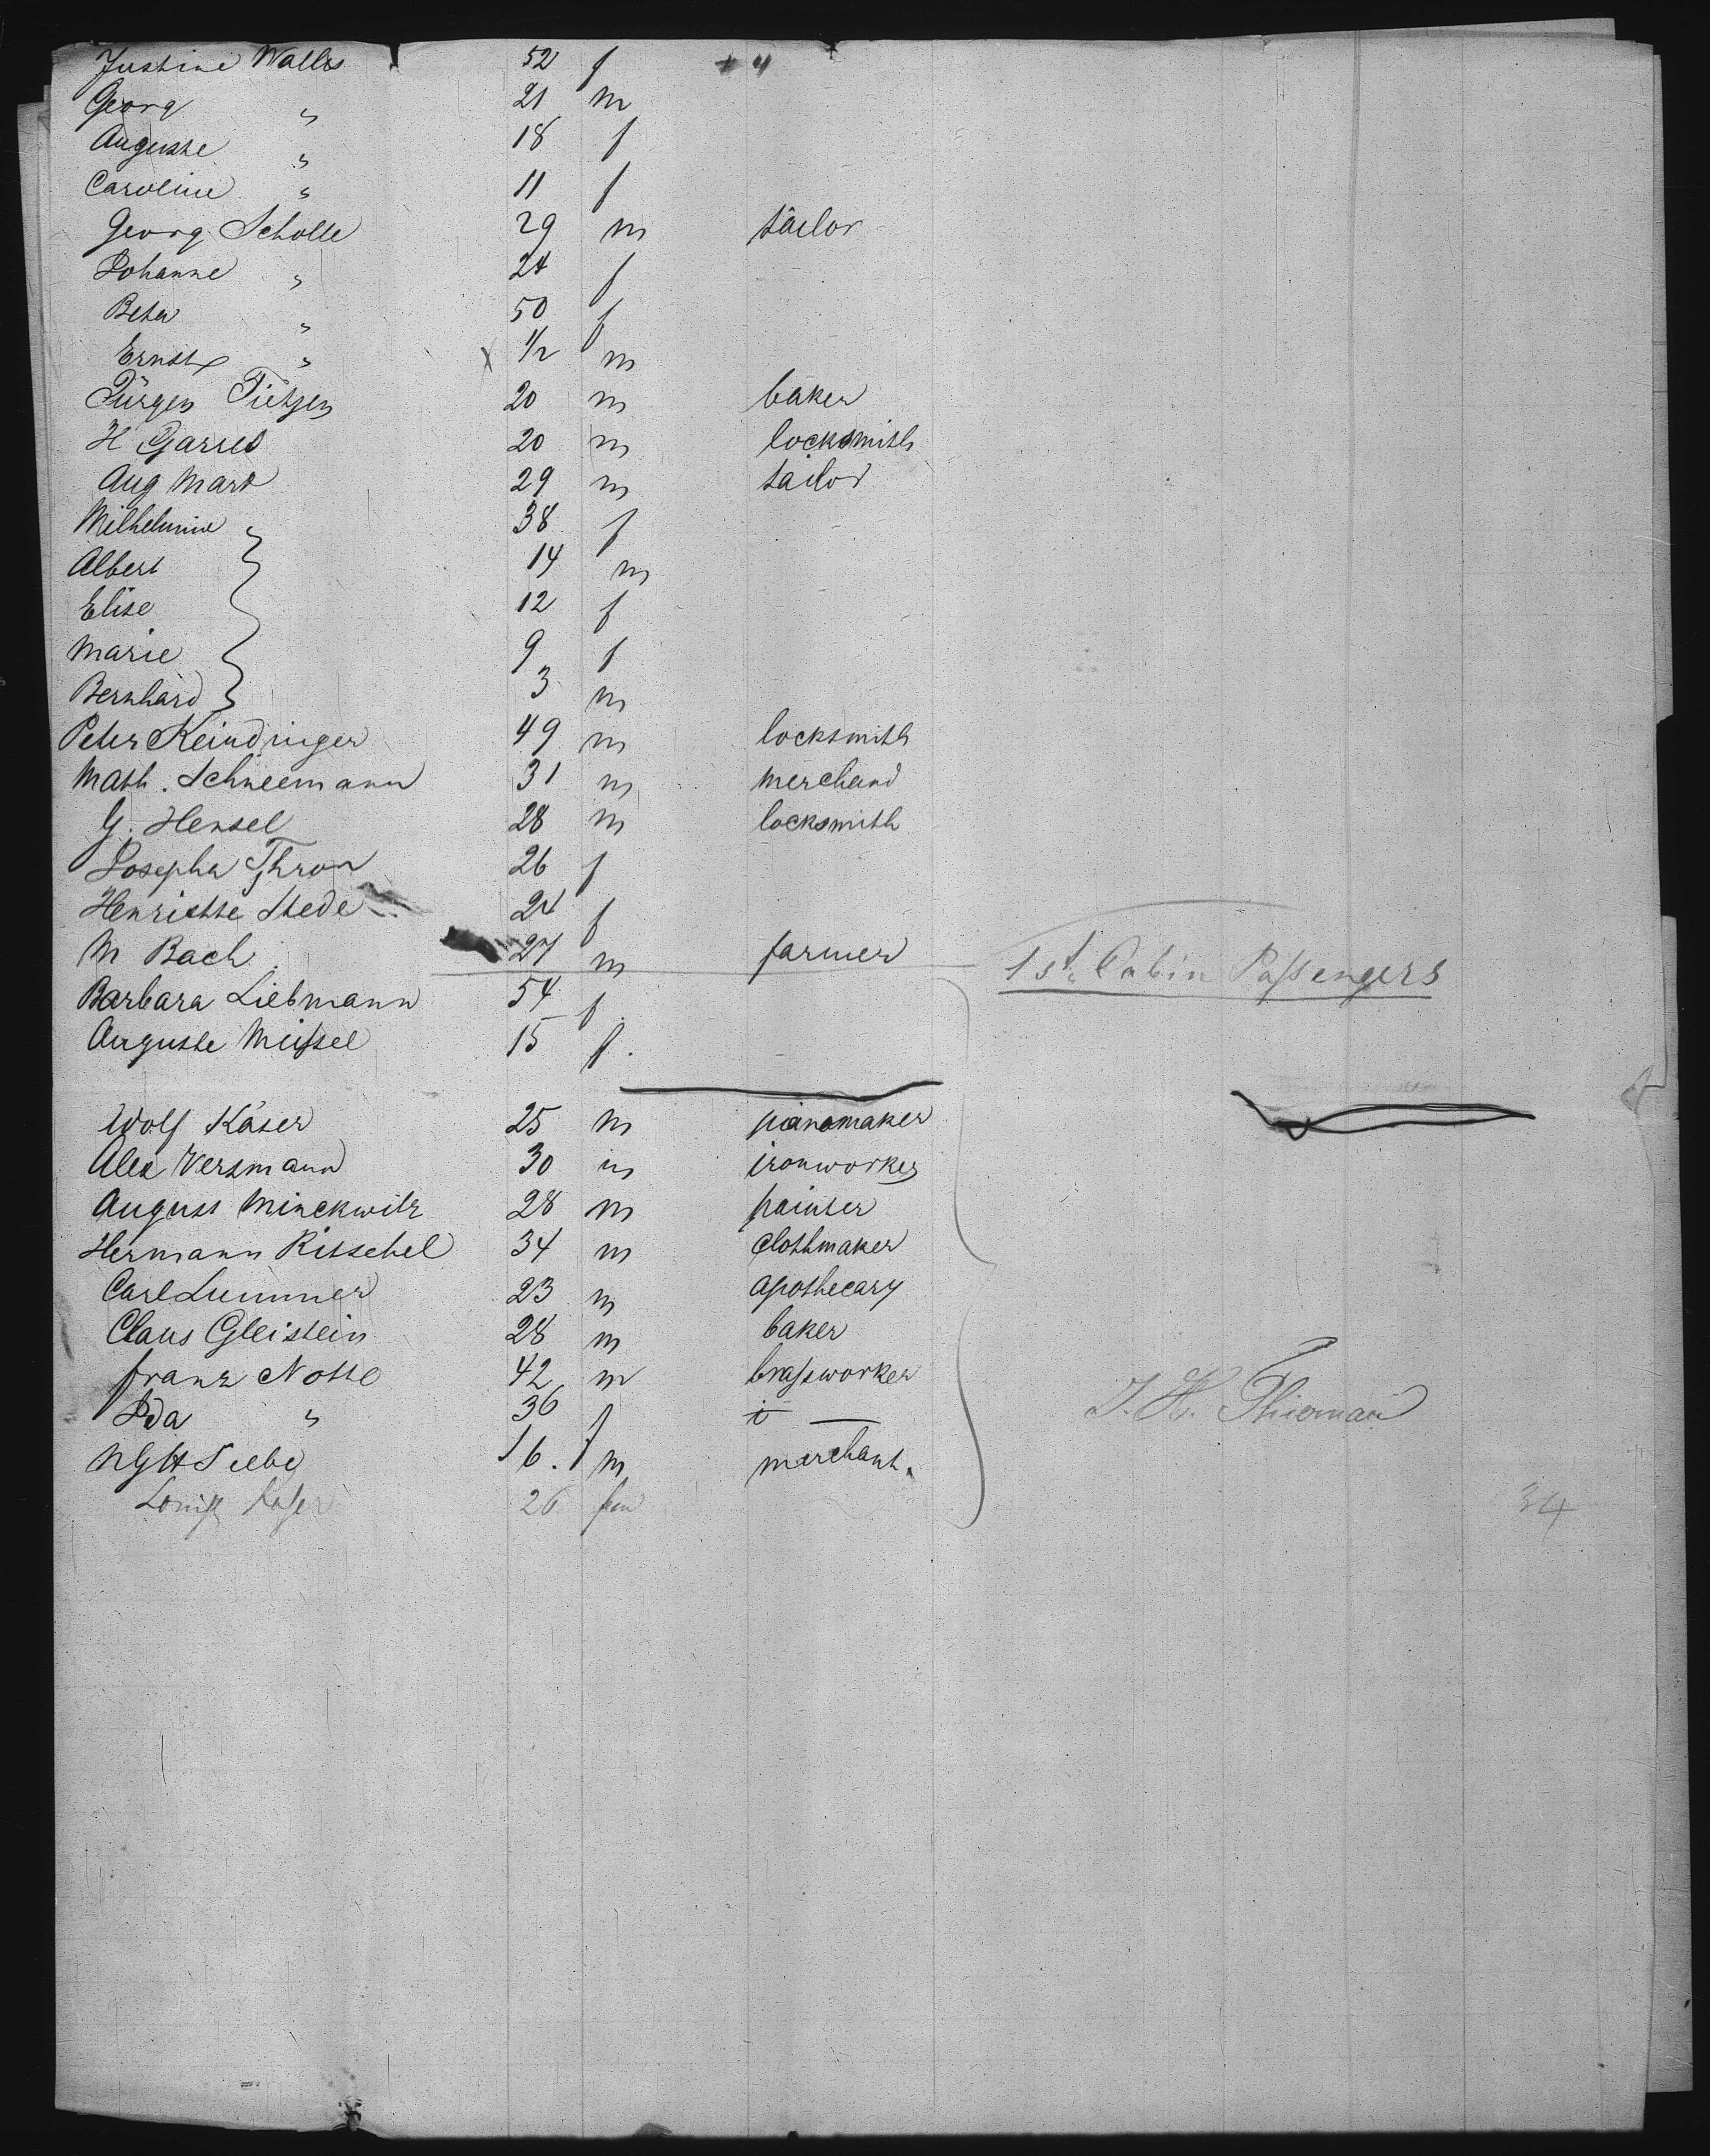 Justine Walles 52 f + 4
Georg " 21 m
Auguste " 18 f
Caroline " 11 f
Georg Scholle 29 m tailor
Johanne " 24 f
Beta " 50 f
Ernst " x 1/2 m
Jürgen Tietjen 20 m baker
H Garred 20 m locksmith
Aug Mark 29 m tailor
Wilhelmine " 38 f
Albert 14 m
Elise 12 f
Marie 9 f
Bernhard 3 m
Peter Keindinger 49 m locksmith
Math. Schneemann 31 m merchand
G. Hensel 28 m locksmith
Josepha Thron 26 f
Henriette Stede 24 f
M Bach 27 m farmer
1st Cabin Passengers
Barbara Liebmann 54 f.
Auguste Meissel 15 f.
Wolf Käser 25 m pianomaker
Alex Versmann 30 m ironworker
August Minckwitz 28 m painter
Hermann Ritschel 34 m clothmaker
Carl Lummer 23 m apothecary
Claus Gleistein 28 m baker
Franz Notte 42 m brassworker
Ida " 36 f —
J. H. Thieman
16. m merchant.
26 fem
34